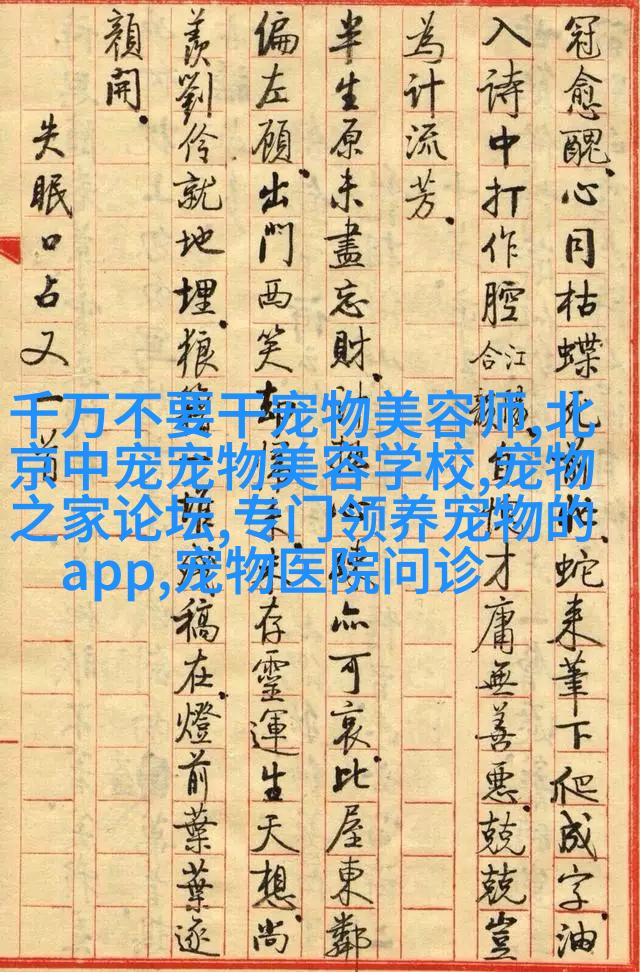 冠愈醜.心同枯蝶死前.蛇来筆下爬成字.油
入詩中打作腔江合自愧才庸無善悪.兢兢豈
為計流芳.
半生原未盡忘財.亦可哀.比屋東鄰
偏左顧.出門西笑却存靈運生天想.尚
羨劉伶就地埋.狼稿在.燈前葉葉逐
顏開.
失眠口占又一首
千万不要干宠物美容师,北
京中宠宠物美容学校,宠物
之家论坛,专门领养宠物的
app,宠物医院问诊